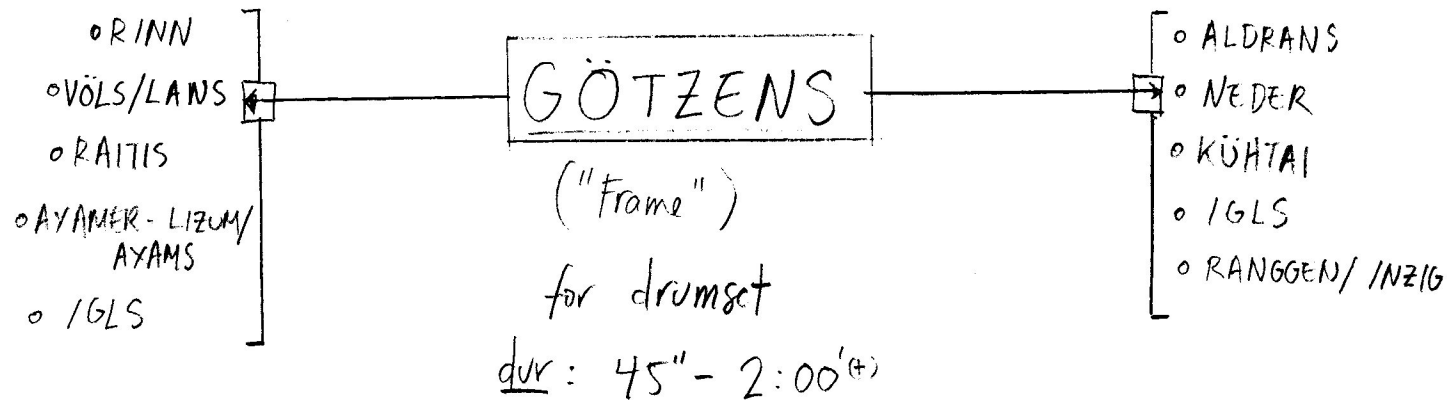 • RINN
• VÖLS/LANS
• RAITIS
• AXAMER-LIZUM/
AXAMS
• IGLS
GÖTZENS
("Frame")
for drumset
dur: 45" - 2:00'(+)
• ALDRANS
• NEDER
• KÜHTAI
• IGLS
• RANGGEN/INZIG